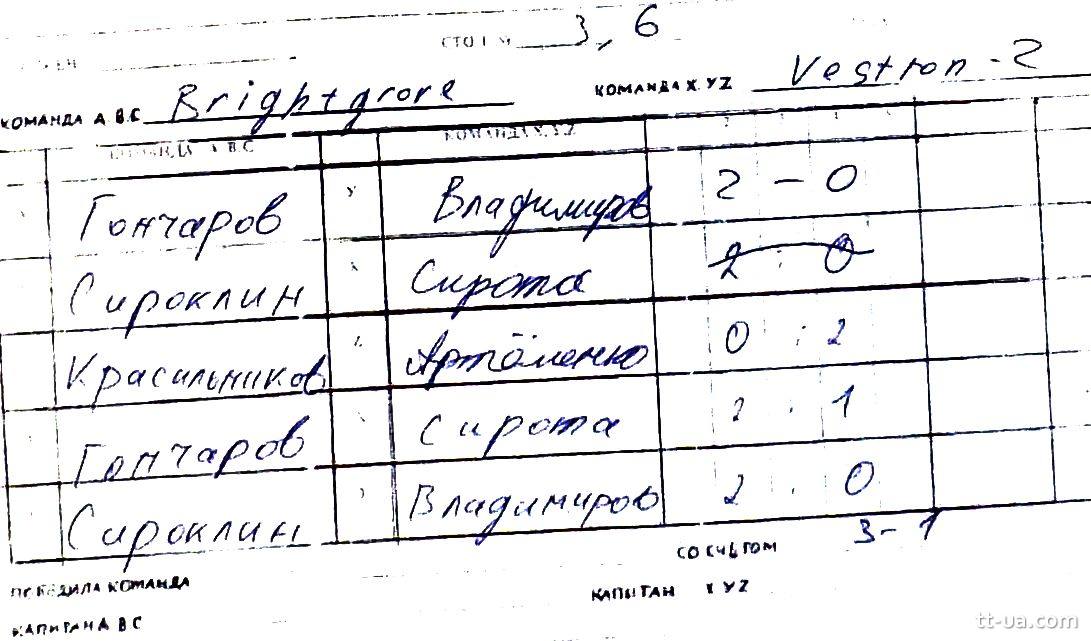 3, 6
КОМАНДА А.В.С Brightgrove КОМАНДА X.YZ Vestron - 2
КОМАНДА А.В.С КОМАНДА X.Y.Z
Гончаров У Владимиров 2 - 0
Сироклин X Сирота 2 : 0
Красильников Z Артёменко 0 : 2
Гончаров Сирота 2 : 1
Сироклин Владимиров 2 : 0
СО СЧЕТОМ 3 - 1
ПОБЕДИЛА КОМАНДА
КАПИТАН XYZ
КАПИТАН А В С
tt-ua.com